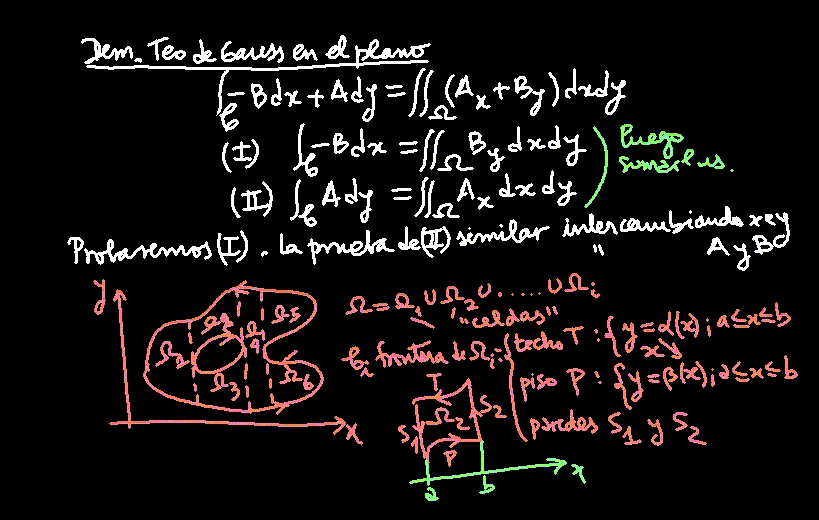 Dem. Teo de Gauss en el plano
∫_C -Bdx + Ady = ∬_Ω (A_x + B_y) dxdy
(I) ∫_C -Bdx = ∬_Ω B_y dxdy
(II) ∫_C Ady = ∬_Ω A_x dxdy
luego
sumarlas.
Probaremos (I). La prueba de (II) similar intercambiando x e y
" A y B
y
x
Ω_2 Ω_3 Ω_4 Ω_5 Ω_6
Ω = Ω_1 ∪ Ω_2 ∪ ..... ∪ Ω_i
"celdas"
C_i frontera de Ω_i:
techo T: { y = α(x); a ≤ x ≤ b
piso P: { y = β(x); a ≤ x ≤ b
paredes S_1 y S_2
T
S_1 Ω_2 S_2
P
a b x